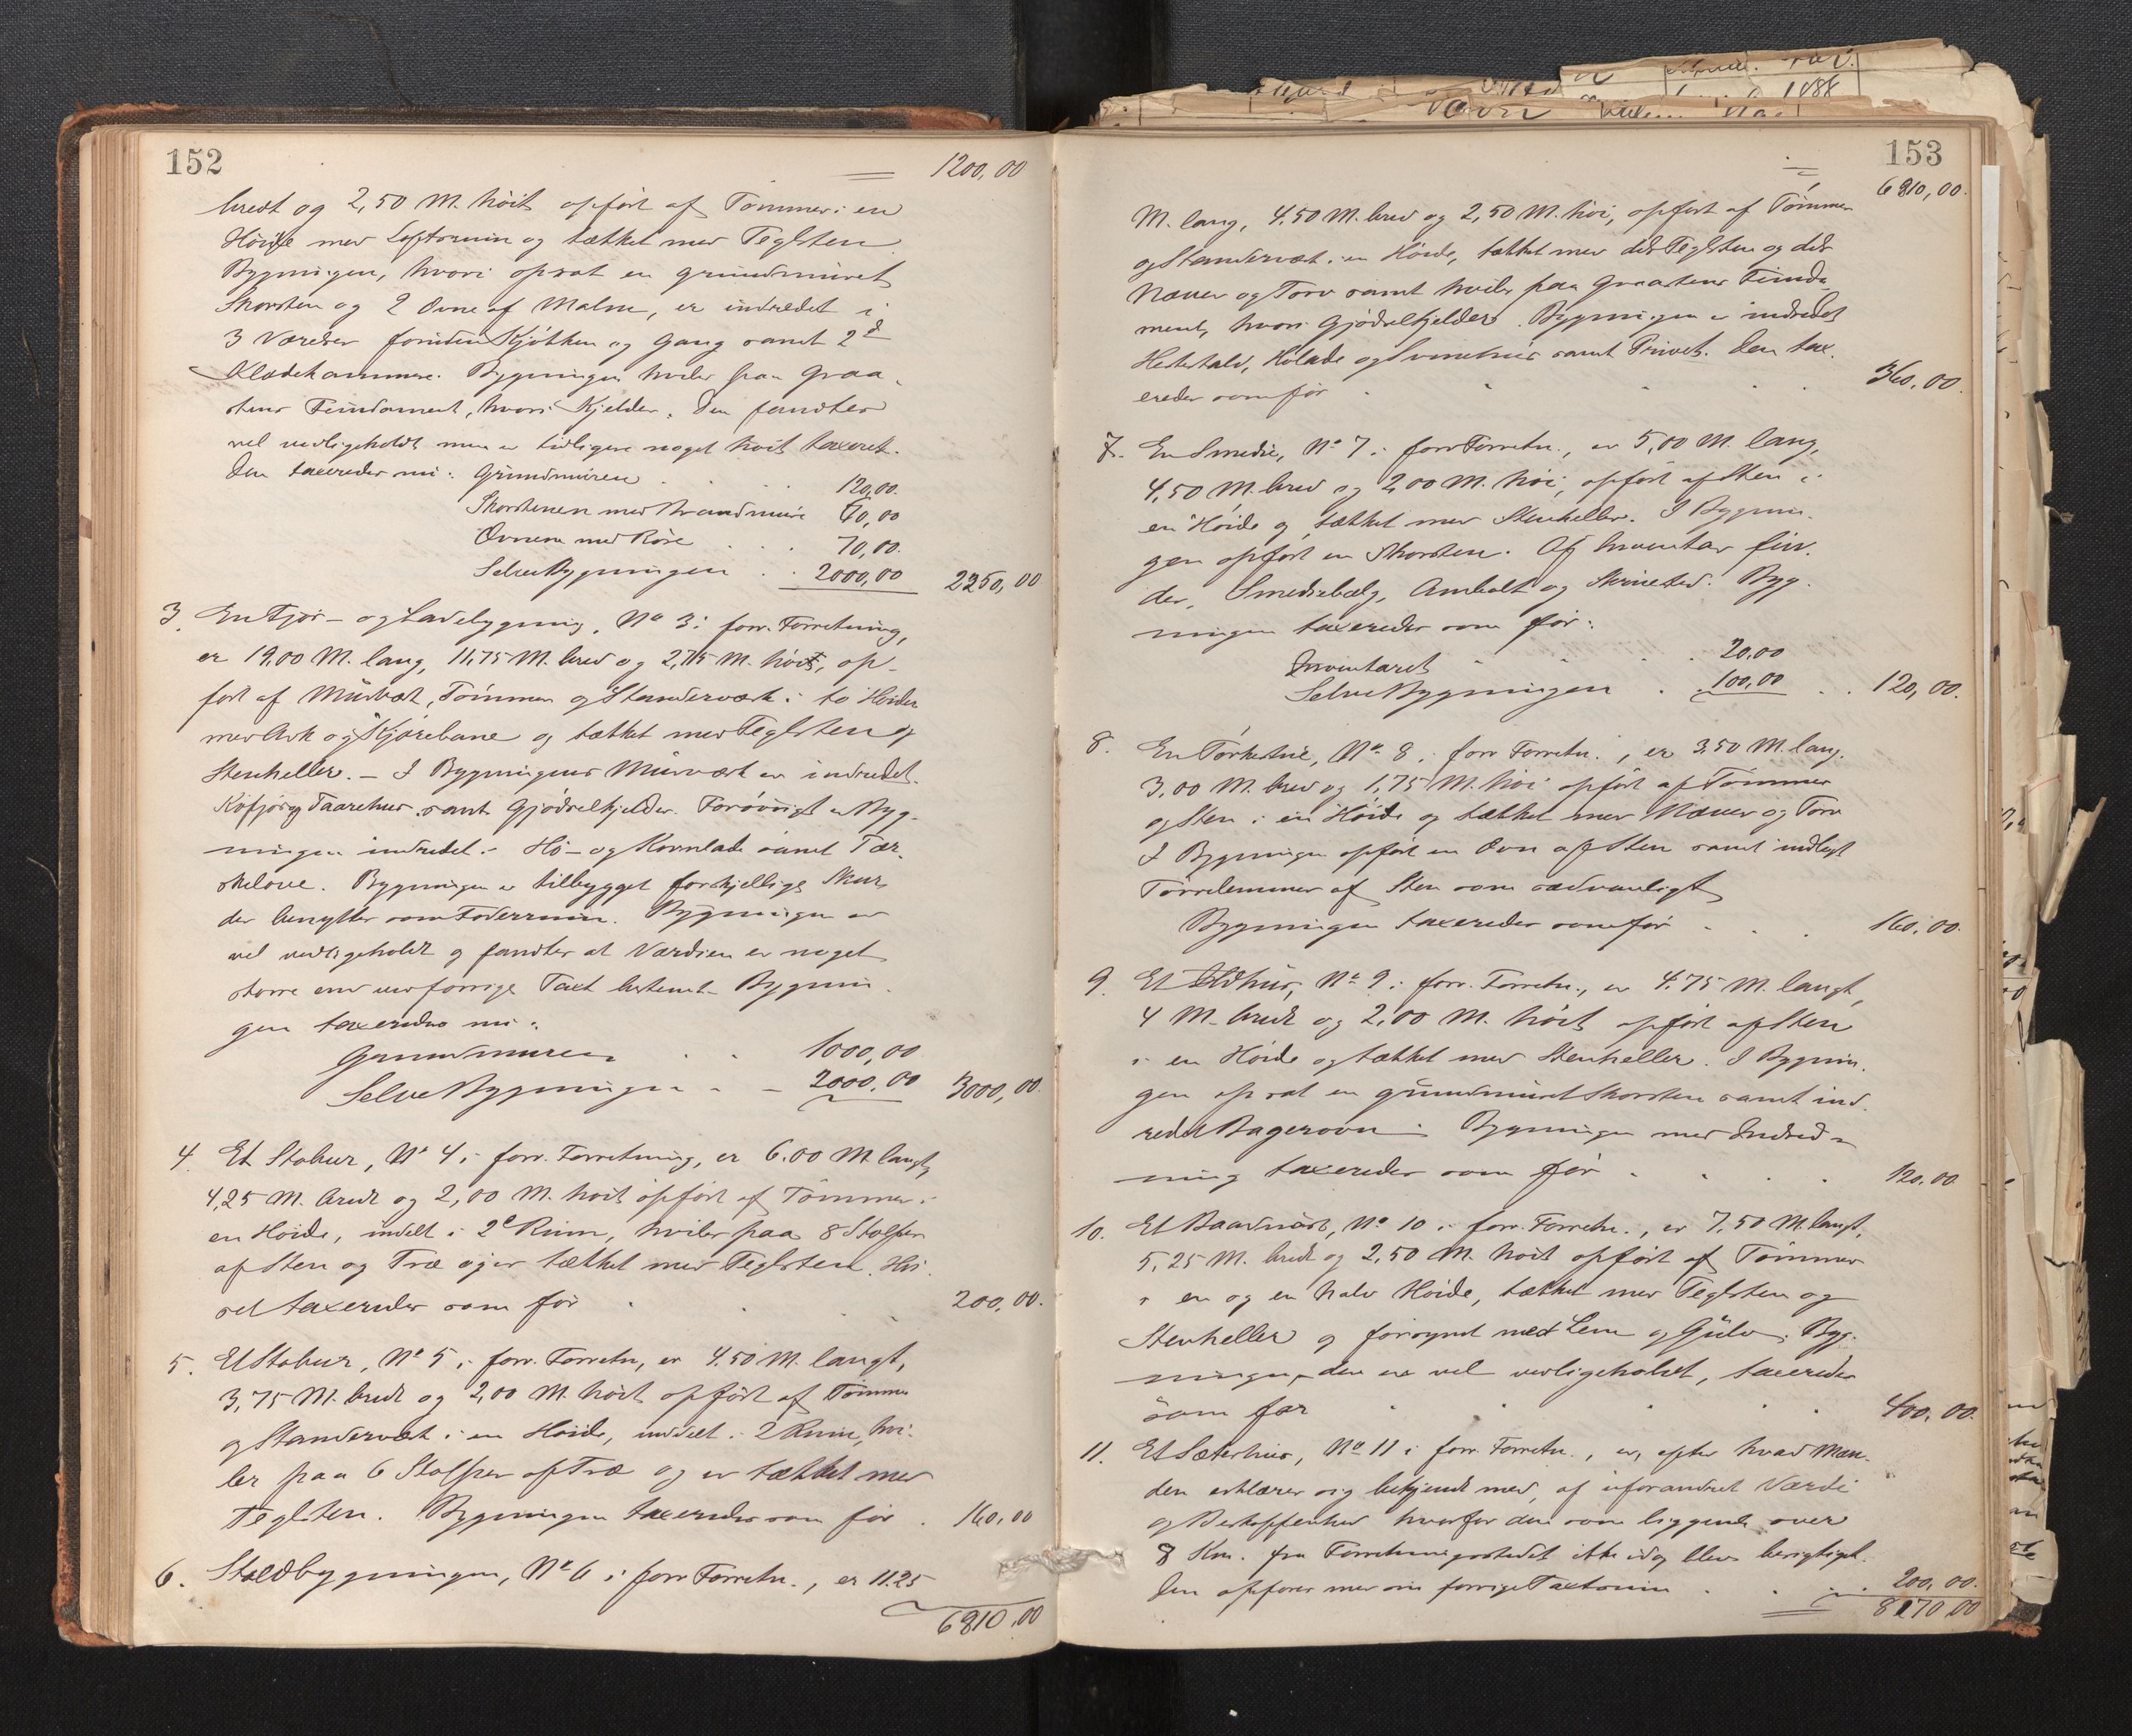 152
1200,00
bredt og 2,50 M. höit opfört af Tömmer i en
Höide med Loftsrum og tækket med Teglsten
Bygningen, hvori opsat en grundmuret
Skorsten og 2 Ovne af Malm, er indredet i
3 Værelser foruden Kjökken og Gang samt 2de
Klædekammere. Bygningen hviler paa Graa-
stens Fundament, hvori Kjelder. Den fandtes
vel vedligeholdt men er tidligere noget höit taxeret.
Den taxeredes nu: Grundmuren . . . 120,00.
Skorstenen med Brandmure 60,00
Ovnene med Rör . . . 70,00.
Selve Bygningen . . 2000,00 2250,00
3. En Fjös- og Ladebygning, No 3 i forr. Forretning,
er 19,00 M. lang, 11,75 M. bred og 2,75 M. höi, op-
fört af Murværk, Tömmer og Standerværk i to Höider
med Ark og Kjörebane og tækket med Teglsten og
Stenheller. - I Bygningens Murværk er indredet
Köfjös og Faarehus samt Gjödselkjelder. Forövrigt er Byg-
ningen indredet i Hö- og Kornlade samt Tær-
skelove. Bygningen er tilbygget forskjellige Skur,
der benyttes som Foderrum. Bygningen er
vel vedligeholdt og fandtes at Værdien er noget
större end ved forrige Taxt bestemt. Bygnin-
gen taxeredes nu:
Grundmuren . . 1000,00
Selve Bygningen . - 2000,00 3000,00.
4. Et Stabur, No 4 i forr. Forretning, er 6.00 M. langt,
4,25 M. bredt og 2,00 M. höit opfört af Tömmer i
en Höide, inddelt i 2e Rum, hviler paa 8 Stolper
af Sten og Træ og er tækket med Teglsten. Hu-
set taxeredes som för . . . 200,00.
5. Et Stabur, No 5 i forr. Forretn., er 4.50 M. langt,
3,75 M. bredt og 2,00 M. höit opfört af Tömmer
og Standerværk i en Höide, inddelt i 2 Rum, hvi-
ler paa 6 Stolper af Træ og er tækket med
Teglsten. Bygningen taxeredes som för . 160,00
6. Staldbygningen, No 6 i forr Forretn., er 11.25
6810,00
153
6810,00.
M. lang, 4.50 M. bred og 2,50 M. höi, opfört af Tömmer
og Standerværk i en Höide, tækket med dels Teglsten og dels
Næver og Torv samt hviler paa Graastens Funda-
ment, hvori Gjödselkjelder. Bygningen er indredet
Hestestald, Hölade og Svinehus samt Privet. Den tax-
eredes som för . . . 360,00.
7. En Smedie, No 7 i forr Forretn., er 5,00 M. lang,
4,50 M. bred og 2,00 M. höi, opfört af Sten i
en Höide og tækket med Stenheller. I Bygnin-
gen opfört en Skorsten. Af Inventar fin-
des, Smediebælg, Ambolt og Skruested. Byg-
ningen taxeredes som för:
Inventaret . . . 20,00
Selve Bygningen . . 100,00 . . 120,00.
8. En Törkestue, No 8 i forr Forretn., er 3,50 M. lang.
3,00 M. bred og 1,75 M. höi opfört af Tömmer
og Sten i en Höide og tækket med Næver og Torv
I Bygningen opfört en Ovn af Sten samt indlagt
Törrelemmer af Sten som sædvanligt
Bygningen taxeredes som för . . . 160,00.
9. Et Ildhus, No 9 i forr. Forretn., er 4.75 M. langt,
4 M. bredt og 2,00 M. höit opfört af Sten
i en Höide og tækket med Stenheller. I Bygnin-
gen opsat en grundmuret Skorsten samt ind-
redet Bagerovn. Bygningen med Indred-
ning taxeredes som för . . . 120,00
10. Et Baadnöst, No 10 i forr. Forretn., er 7,50 M. langt,
5,25 M. bredt og 2,50 M. höit opfört af Tömmer
i en og en halv Höide, tækket med Teglsten og
Stenheller og forsynet med Lem og Gulv. Byg-
ningen, der er vel vedligeholdt, taxeredes
som för . . . 400,00.
11. Et Sæterhus, No 11 i forr. Forretn., er, efter hvad Mæn-
dene erklærer sig bekjendt med, af uforandret Værdi
og Beskaffenhed hvorfor den som liggende over
8 Km. fra Forretningsstedet ikke idag blev besigtiget.
Den opföres med sin forrige Taxtsum . . . 200,00.
8170,00